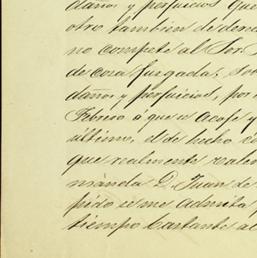 daños y perjuicios que
otro tambien de dere
no compete al Sor.
de cosa juzgada, so
daños y perjuicios, por
Febrero á que se acoje y
último, el de hecho
que realmente
manda D. Juan de
pido se me admita
tiempo bastante al